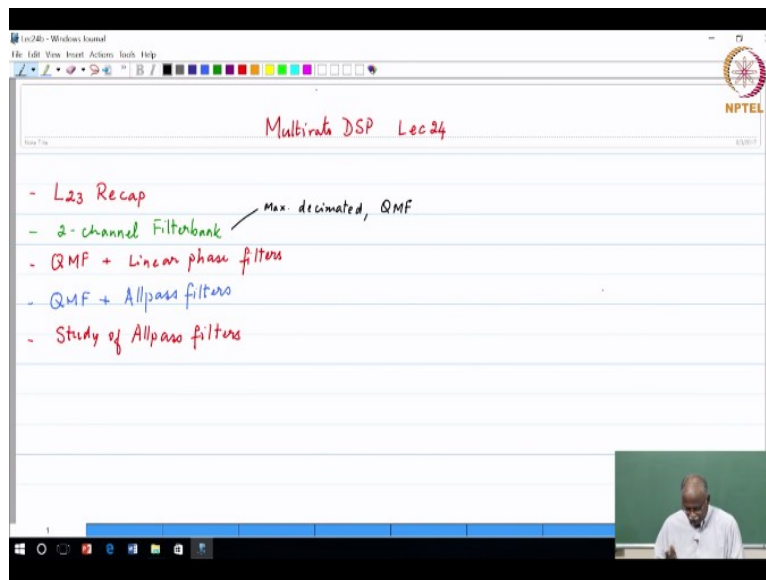 Lec24b - Windows Journal
File Edit View Insert Actions Tools Help
NPTEL
Multirate DSP Lec 24
Note Title
- L23 Recap
- 2-channel Filterbank
Max. decimated, QMF
- QMF + Linear phase filters
- QMF + Allpass filters
- Study of Allpass filters
1